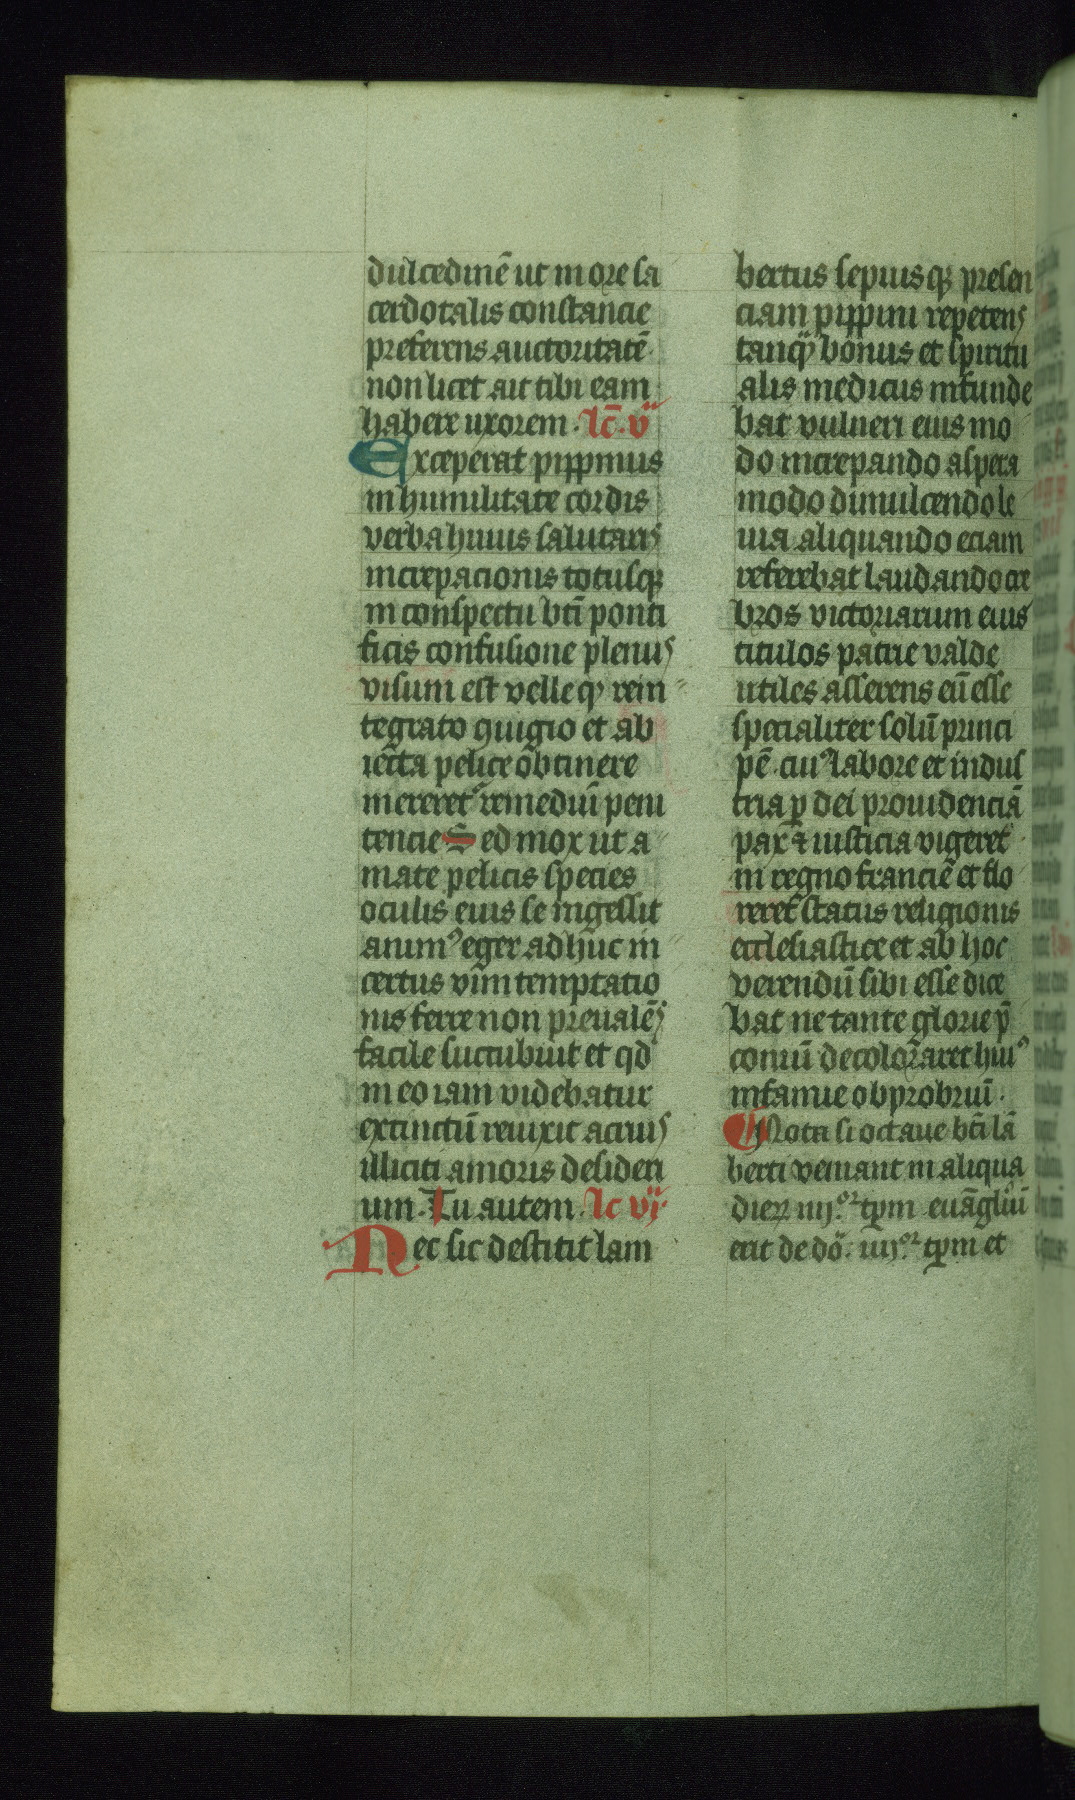 dulcedinē ut more sa
cerdotalis constancie
preferens auctoritatē
non licet ait tibi eam
habere uxorem . lc̄ . va
Exceperat pippinus
in humilitate cordis
verba huius salutaris
increpacionis totusq;
in conspectu bt̄i ponti
ficis confusione plenus
visum est velle qꝫ rein
tegrato ꝯiugio et ab
iecta pelice obtinere
mereret᷑ remediū peni
tencie Sed mox ut a
mate pelicis species
oculis eius se ingessit
animꝰ eger adhuc in
certus vim temptatio
nis ferre non preualēs
facile succubuit et qd
in eo iam videbatur
extinctū reuixit acrius
illiciti amoris desideri
um . Tu autem . lc vi
Nec sic destitit lam
bertus sepius q; presen
ciam pippini repetens
tanq̄ bonus et spiritu
alis medicus infunde
bat vulneri eius mo
do increpando aspera
modo dimulcendo le
uia aliquando eciam
referebat laudando cre
bros victoriarum eius
titulos patrie valde
utiles asserens eū esse
specialiter solū princi
pē . cuiꝰ labore et indus
tria ꝑ dei prouidenciā
pax ⁊ iusticia vigeret
in regno francie et flo
reret status religionis
ecclesiastice et ab hoc
verendū sibi esse dice
bat ne tante glorie p̄
coniū decoloraret huiꝰ
infamie obprobriū .
¶ Nota si octaue bt̄i lā
berti veniant in aliqua
dieꝝ iiijor tp̄m euāgliū
erit de dō . iiijor tp̄m et